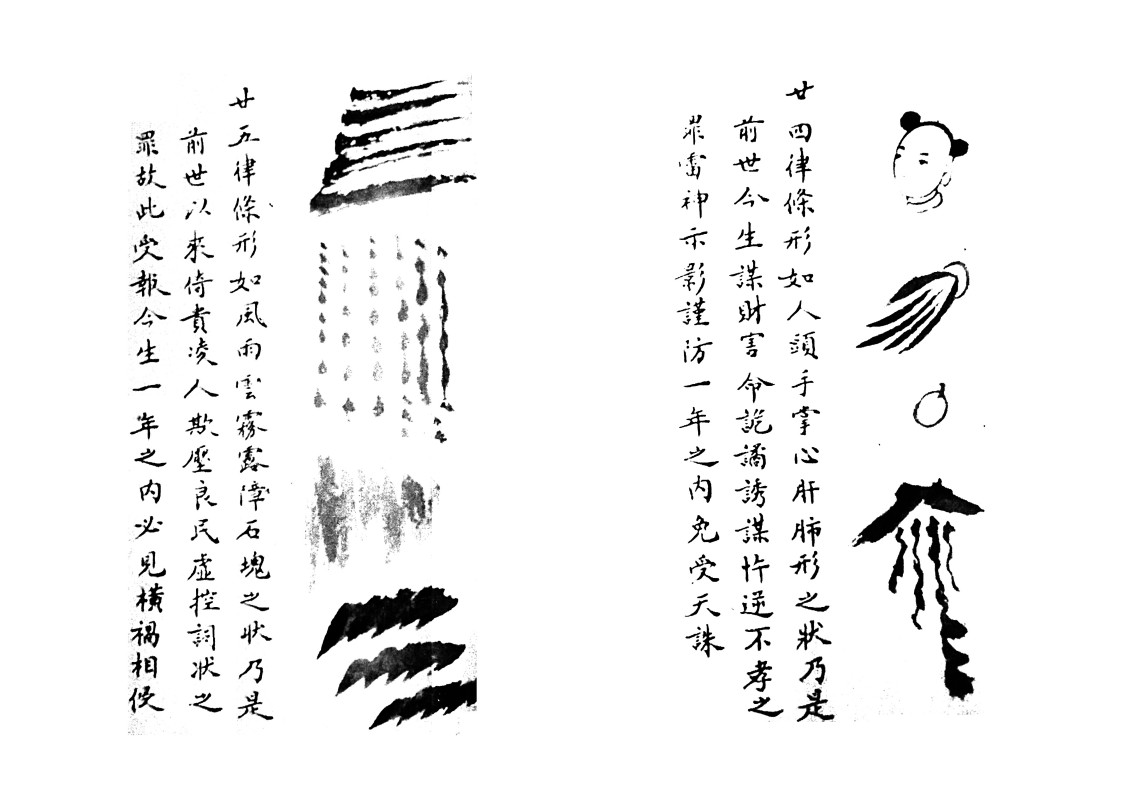 廿四律條形如人頭手掌心肝肺形之狀乃是
前世今生謀財害命詭譎誘謀忤逆不孝之
罪雷神示影謹防一年之內免受天誅
廿五律條形如風雨雲霧露漳石塊之狀乃是
前世以來倚貴凌人欺壓良民虛控詞状之
罪故此受報今生一年之內必見橫禍相侵